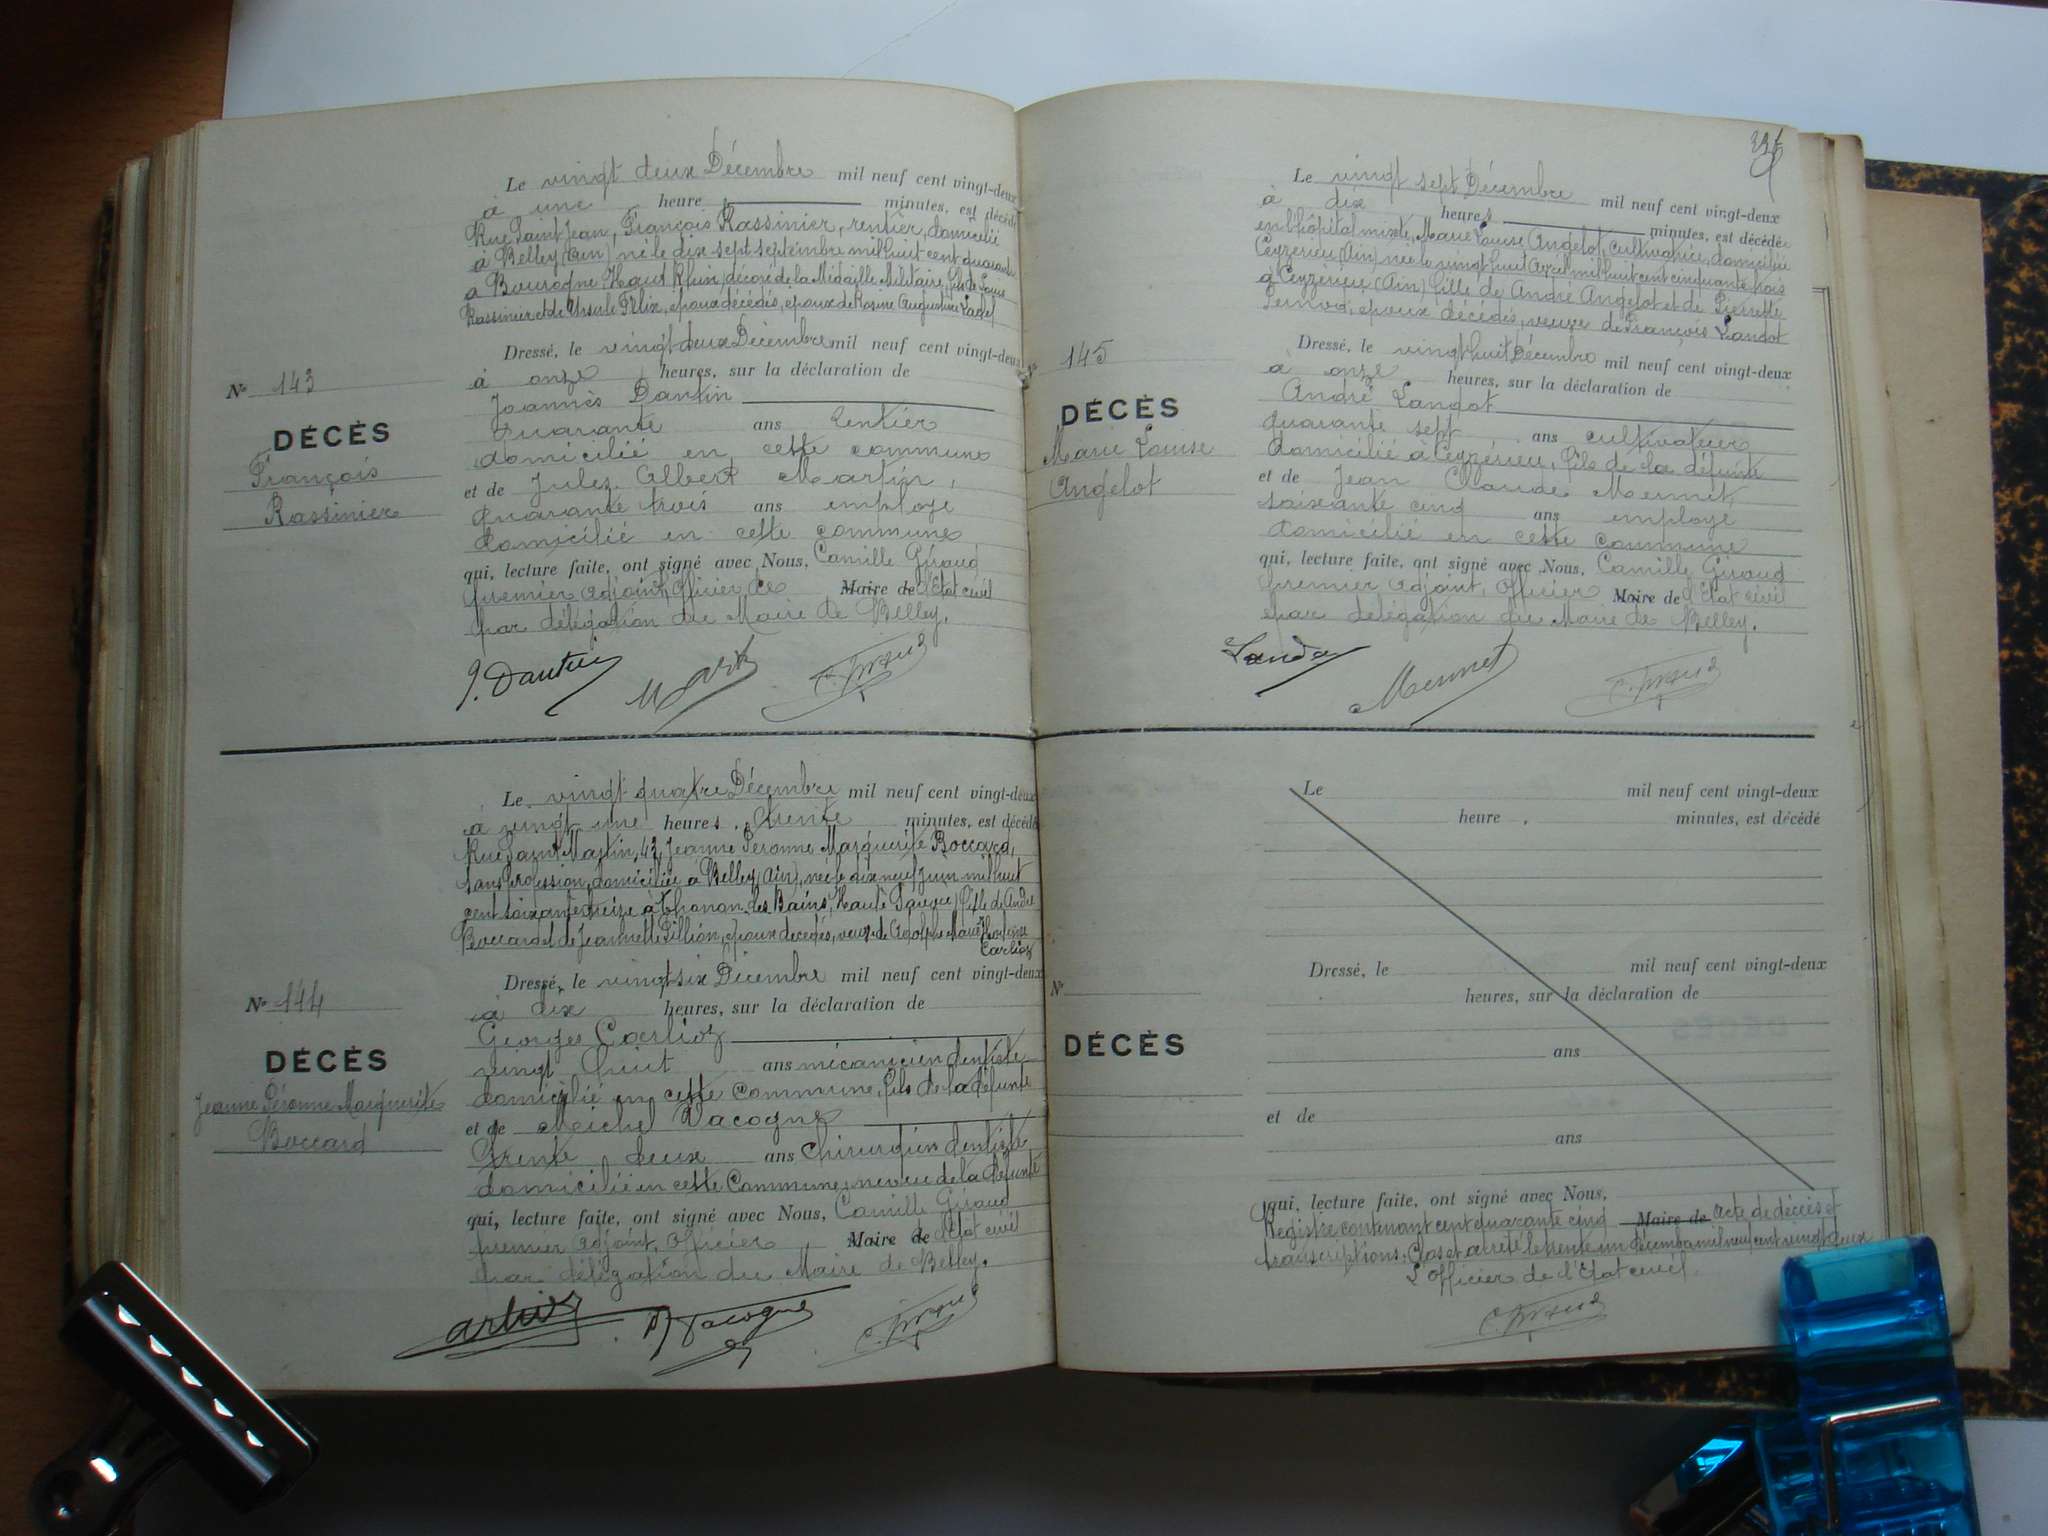 Le vingt deux Décembre mil neuf cent vingt-deux
à une heure, minutes, est décédé
Rue Saint Jean, François Rassinier, rentier, domicilié
à Belley (Ain) né le dix sept septembre mil huit cent quarante
à Bourogne (Haut Rhin) décoré de la Médaille Militaire, fils de Louis
Rassinier et de Ursule Félix, époux décédés, époux de Rosine Augustine
Dressé, le vingt deux Décembre mil neuf cent vingt-deux
à onze heures, sur la déclaration de
Nº 143
Joannès Dantin
DÉCÈS
quarante ans rentier
domicilié en cette commune
François
et de Jules Albert Martin,
Rassinier
quarante trois ans employé
domicilié en cette commune
qui, lecture faite, ont signé avec Nous, Camille Giraud
premier adjoint, Officier de Maire de l'Etat civil
par délégation du Maire de Belley.
J. Dantin C. Giraud
Le vingt quatre Décembre mil neuf cent vingt-deux
à vingt une heures, trente minutes, est décédé
Rue Saint Martin, 43, Jeanne Péronne Marguerite Boccard,
sans profession, domiciliée à Belley (Ain), née le dix neuf juin mil huit
cent soixante treize à Thonon les Bains, (Haute Savoie) fille de André
Boccard et de Jeannette Pillion, époux décédés, veuve de Adolphe Marie
Carlioz
Dressé, le vingt six Décembre mil neuf cent vingt-deux
à dix heures, sur la déclaration de
Nº 144
Georges Carlioz
DÉCÈS
vingt huit ans mécanicien dentiste
domicilié en cette commune, fils de la défunte
Jeanne Péronne Marguerite
et de Michel Vacogne
Boccard
trente deux ans chirurgien dentiste
domicilié en cette commune, neveu de la défunte
qui, lecture faite, ont signé avec Nous, Camille Giraud
premier adjoint, Officier Maire de l'Etat civil
par délégation du Maire de Belley.
Vacogne C. Giraud
Le vingt sept Décembre mil neuf cent vingt-deux
à dix heures minutes, est décédée
en l'hôpital mixte, Marie Louise Angelot, cultivatrice, domiciliée
Ceyzérieu (Ain) née le vingt huit Avril mil huit cent cinquante trois
à Ceyzérieu (Ain) fille de André Angelot et de Pierrette
époux décédés, veuve de François Landot
Dressé, le vingt huit Décembre mil neuf cent vingt-deux
à onze heures, sur la déclaration de
145
André Landot
DÉCÈS
quarante sept ans cultivateur
Marie Louise
domicilié à Ceyzérieu, fils de la défunte
Angelot
et de Jean Claude Mermet,
soixante cinq ans employé
domicilié en cette commune
qui, lecture faite, ont signé avec Nous, Camille Giraud
premier adjoint, Officier Maire de l'Etat civil
par délégation du Maire de Belley.
Mermet C. Giraud
Le mil neuf cent vingt-deux
heure, minutes, est décédé
Dressé, le mil neuf cent vingt-deux
Nº
heures, sur la déclaration de
DÉCÈS
ans
et de
ans
qui, lecture faite, ont signé avec Nous,
Registre contenant cent quarante cinq Maire de acte de décès et
transcriptions. Clos et arrêté le trente un décembre mil neuf cent vingt deux
L'officier de l'Etat civil.
C. Giraud